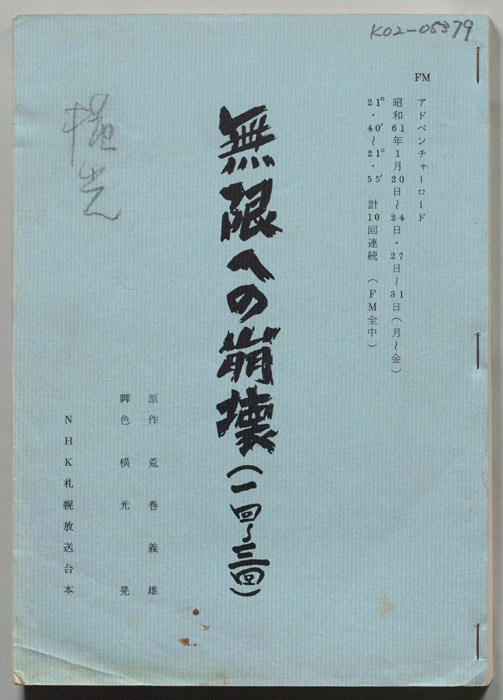 K02-05379
FM アドベンチャーロード
昭和61年1月20日〜24日・27日〜31日(月〜金)
21°・40′〜21°・55′ 計10回連続 (FM全中)
無限への崩壊(一回〜三回)
横光
原作 荒巻義雄
脚色 横光晃
NHK札幌放送台本